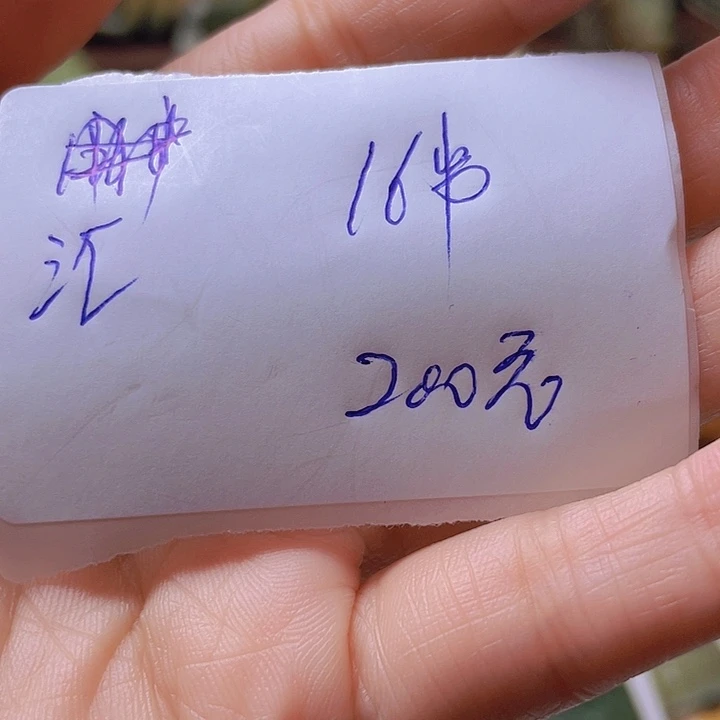 16串
汇
200元